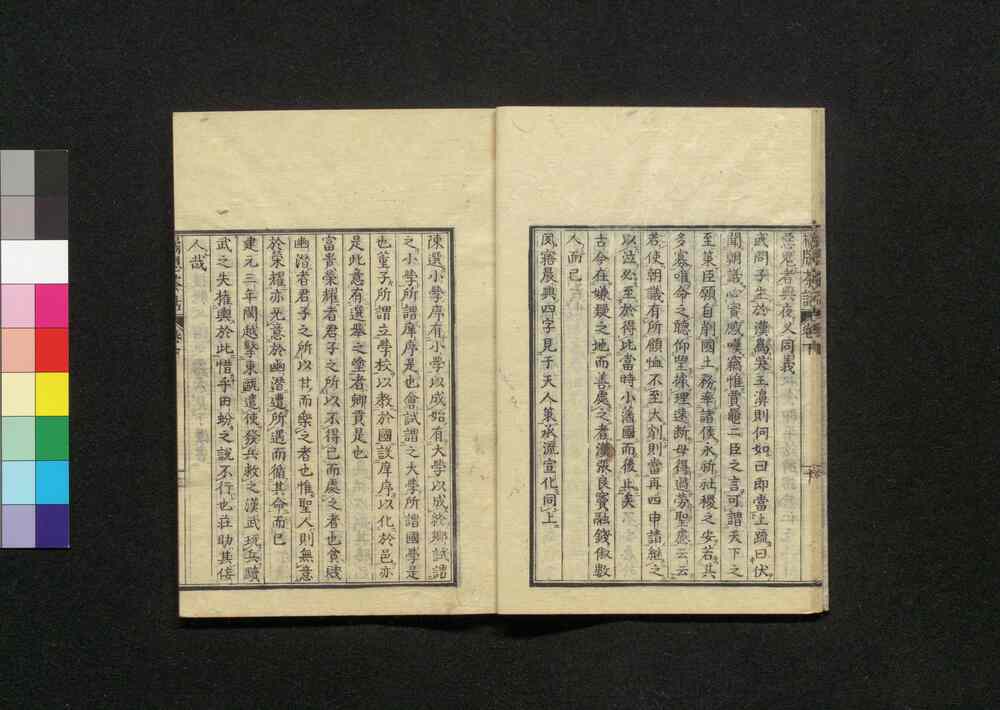 惡鬼者與夜叉同義
或問子生於漢爲吳王濞則何如曰即當上疏曰伏
聞朝議心實感嘆竊惟賈鼂二臣之言可謂天下之
至策臣願自削國土務率諸侯永祈社稷之安若其
多寡唯命之聽仰望採理速斷毋得過勞聖慮云云
若使朝議有所顧恤不至大削則當再四申請継之
以泣必至於得此當時小藩國而後止矣
古今在嫌疑之地而善處之者漢張良竇融錢俶數
人而已
夙寤晨興四字見于天人策承流宣化同上
陳選小學序有小學以成始有大學以成終鄉試謂
之小學所謂庠序是也會試謂之大學所謂國學是
也董子所謂立學校以教於國設庠序以化於邑亦
是此意有選擧之塗者鄉貢是也
富貴榮耀者君子之所以不得已而處之者也貧賤
幽潛者君子之所以甘而樂之者也惟聖人則無意
於榮耀亦无意於幽潛遭所遇而循其命而已
建元三年閩越擊東甌遣使發兵救之漢武玩兵黷
武之失權輿於此惜乎田蚡之說不行也莊助其佞
人哉